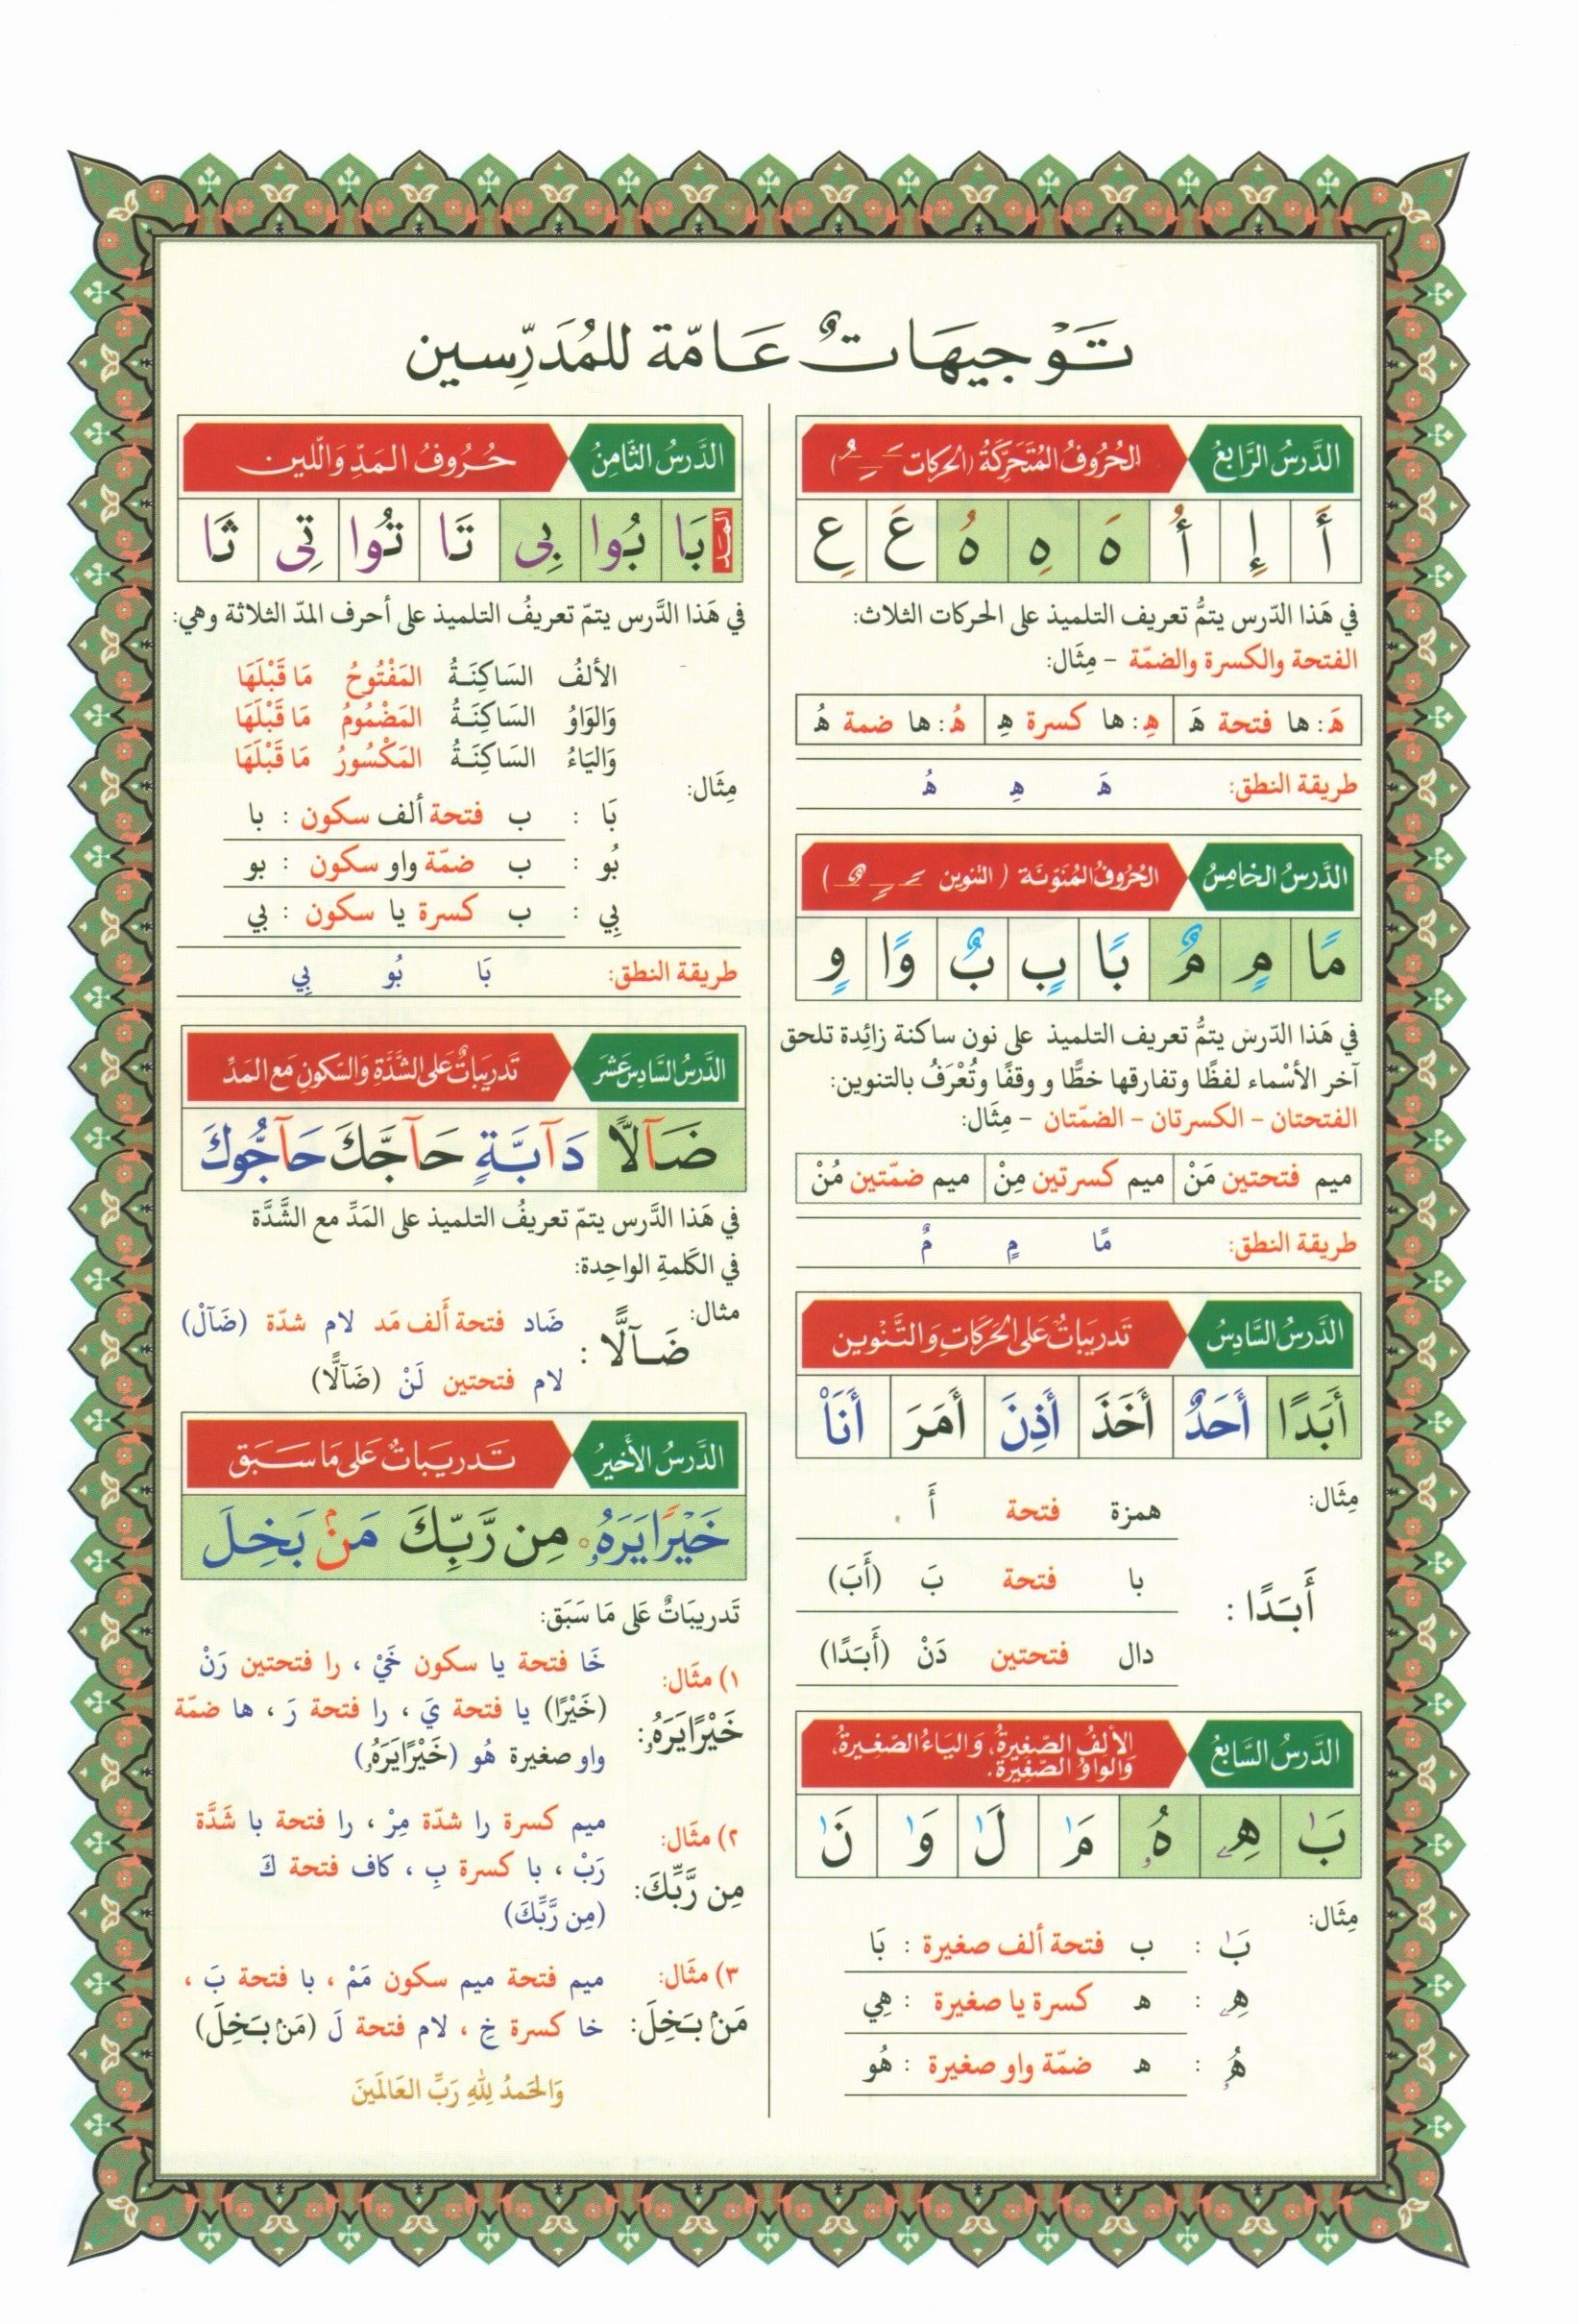 تَوْجِيهَاتٌ عَامّة للمُدَرِّسين
الدَّرسُ الرَّابعُ
الحُرُوفُ المُتَحَرِّكَةُ (الحركات ـَـِـُ)
أَ إِ أُ هَ هِ هُ عَ عِ
في هَذا الدّرس يتمُّ تعريف التلميذ على الحركات الثلاث:
الفتحة والكسرة والضمّة - مِثَال:
هَ: ها فتحة هَ هِ: ها كسرة هِ هُ: ها ضمة هُ
طريقة النطق: هَ هِ هُ
الدَّرسُ الخامِسُ
الحُرُوفُ المُنَوَّنَة (التنوين ـًـٍـٌ)
مًا مٍ مٌ بًا بٍ بٌ وًا وٍ
في هَذا الدّرس يتمُّ تعريف التلميذ على نون ساكنة زائِدة تلحق
آخر الأسْماء لفظًا وتفارقها خطًّا و وقفًا وتُعْرَفُ بالتنوين:
الفتحتان - الكسرتان - الضمّتان - مِثَال:
ميم فتحتين مَنْ ميم كسرتين مِنْ ميم ضمّتين مُنْ
طريقة النطق: مًا مٍ مٌ
الدَّرسُ السَّادِسُ
تَدريبَاتٌ عَلى الحَرَكَاتِ وَالتَّنْوين
أَبَدًا أَحَدٌ أَخَذَ أَذِنَ أَمَرَ أَنَا۠
مِثَال:
همزة فتحة أَ
با فتحة بَ (أَبَ)
أَبَدًا :
دال فتحتين دَنْ (أَبَدًا)
الدَّرسُ السَّابعُ
الألفُ الصّغيرةُ، وَاليَاءُ الصّغيرةُ،
وَالواوُ الصّغيرَة.
بَٰ هِۦ هُۥ مَٰ لَٰ وَٰ نَٰ
مِثَال:
بَٰ : ب فتحة ألف صغيرة : بَا
هِۦ : هـ كسرة يا صغيرة : هِي
هُۥ : هـ ضمّة واو صغيرة : هُو
الدَّرسُ الثّامنُ
حُرُوفُ المَدِّ وَاللّين
المَد بَا بُوا بِى تَا تُوا تِى ثَا
في هَذا الدَّرس يتمّ تعريفُ التلميذ على أحرف المدّ الثلاثة وهي:
الألفُ السَاكِنَةُ المَفْتُوحُ مَا قَبْلَهَا
وَالوَاوُ السَاكِنَةُ المَضْمُومُ مَا قَبْلَهَا
وَاليَاءُ السَاكِنَةُ المَكْسُورُ مَا قَبْلَهَا
مِثَال:
بَا : ب فتحة ألف سكون : با
بُو : ب ضمّة واو سكون : بو
بِي : ب كسرة يا سكون : بي
طريقة النطق: بَا بُو بِي
الدَّرسُ السَّادسَ عَشَرَ
تَدريبَاتٌ عَلى الشَّدَّةِ وَالسّكونِ مَع المَدِّ
ضَآلًّا دَآبَّةٍ حَآجَّكَ حَآجُّوكَ
في هَذا الدَّرس يتمّ تعريفُ التلميذ على المَدِّ مع الشَّدَّة
في الكَلمةِ الواحِدة:
مثال: ضَاد فتحة أَلف مَد لام شدّة (ضَآلْ)
ضَآلًّا :
لام فتحتين لَنْ (ضَآلًّا)
الدَّرسُ الأَخيرُ
تَدريبَاتٌ عَلى مَا سَبَق
خَيْرًا يَرَهُۥ مِن رَّبِّكَ مَنۢ بَخِلَ
تَدريبَاتٌ عَلى مَا سَبَق:
١) مثَال: خَا فتحة يا سكون خَيْ ، را فتحتين رَنْ
خَيْرًا يَرَهُۥ: (خَيْرًا) يا فتحة يَ ، را فتحة رَ ، ها ضمّة
واو صغيرة هُو (خَيْرًا يَرَهُۥ)
٢) مثَال: ميم كسرة را شدّة مِرْ ، را فتحة با شَدَّة
مِن رَّبِّكَ: رَبْ ، با كسرة بِ ، كاف فتحة كَ
(مِن رَّبِّكَ)
٣) مثَال: ميم فتحة ميم سكون مَمْ ، با فتحة بَ ،
مَنۢ بَخِلَ: خا كسرة خِ ، لام فتحة لَ (مَنۢ بَخِلَ)
وَالحَمدُ لِلّٰهِ رَبِّ العَالَمينَ